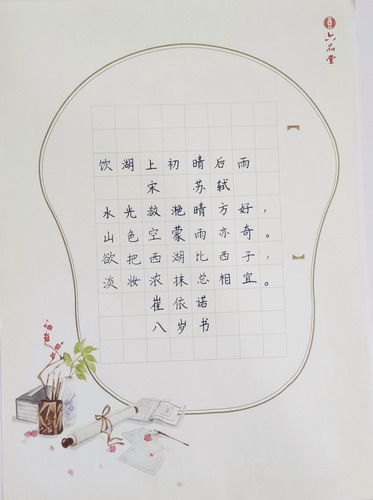 六品堂
饮湖上初晴后雨
宋 苏轼
水光潋滟晴方好，
山色空蒙雨亦奇。
欲把西湖比西子，
淡妆浓抹总相宜。
崔依诺
八岁书